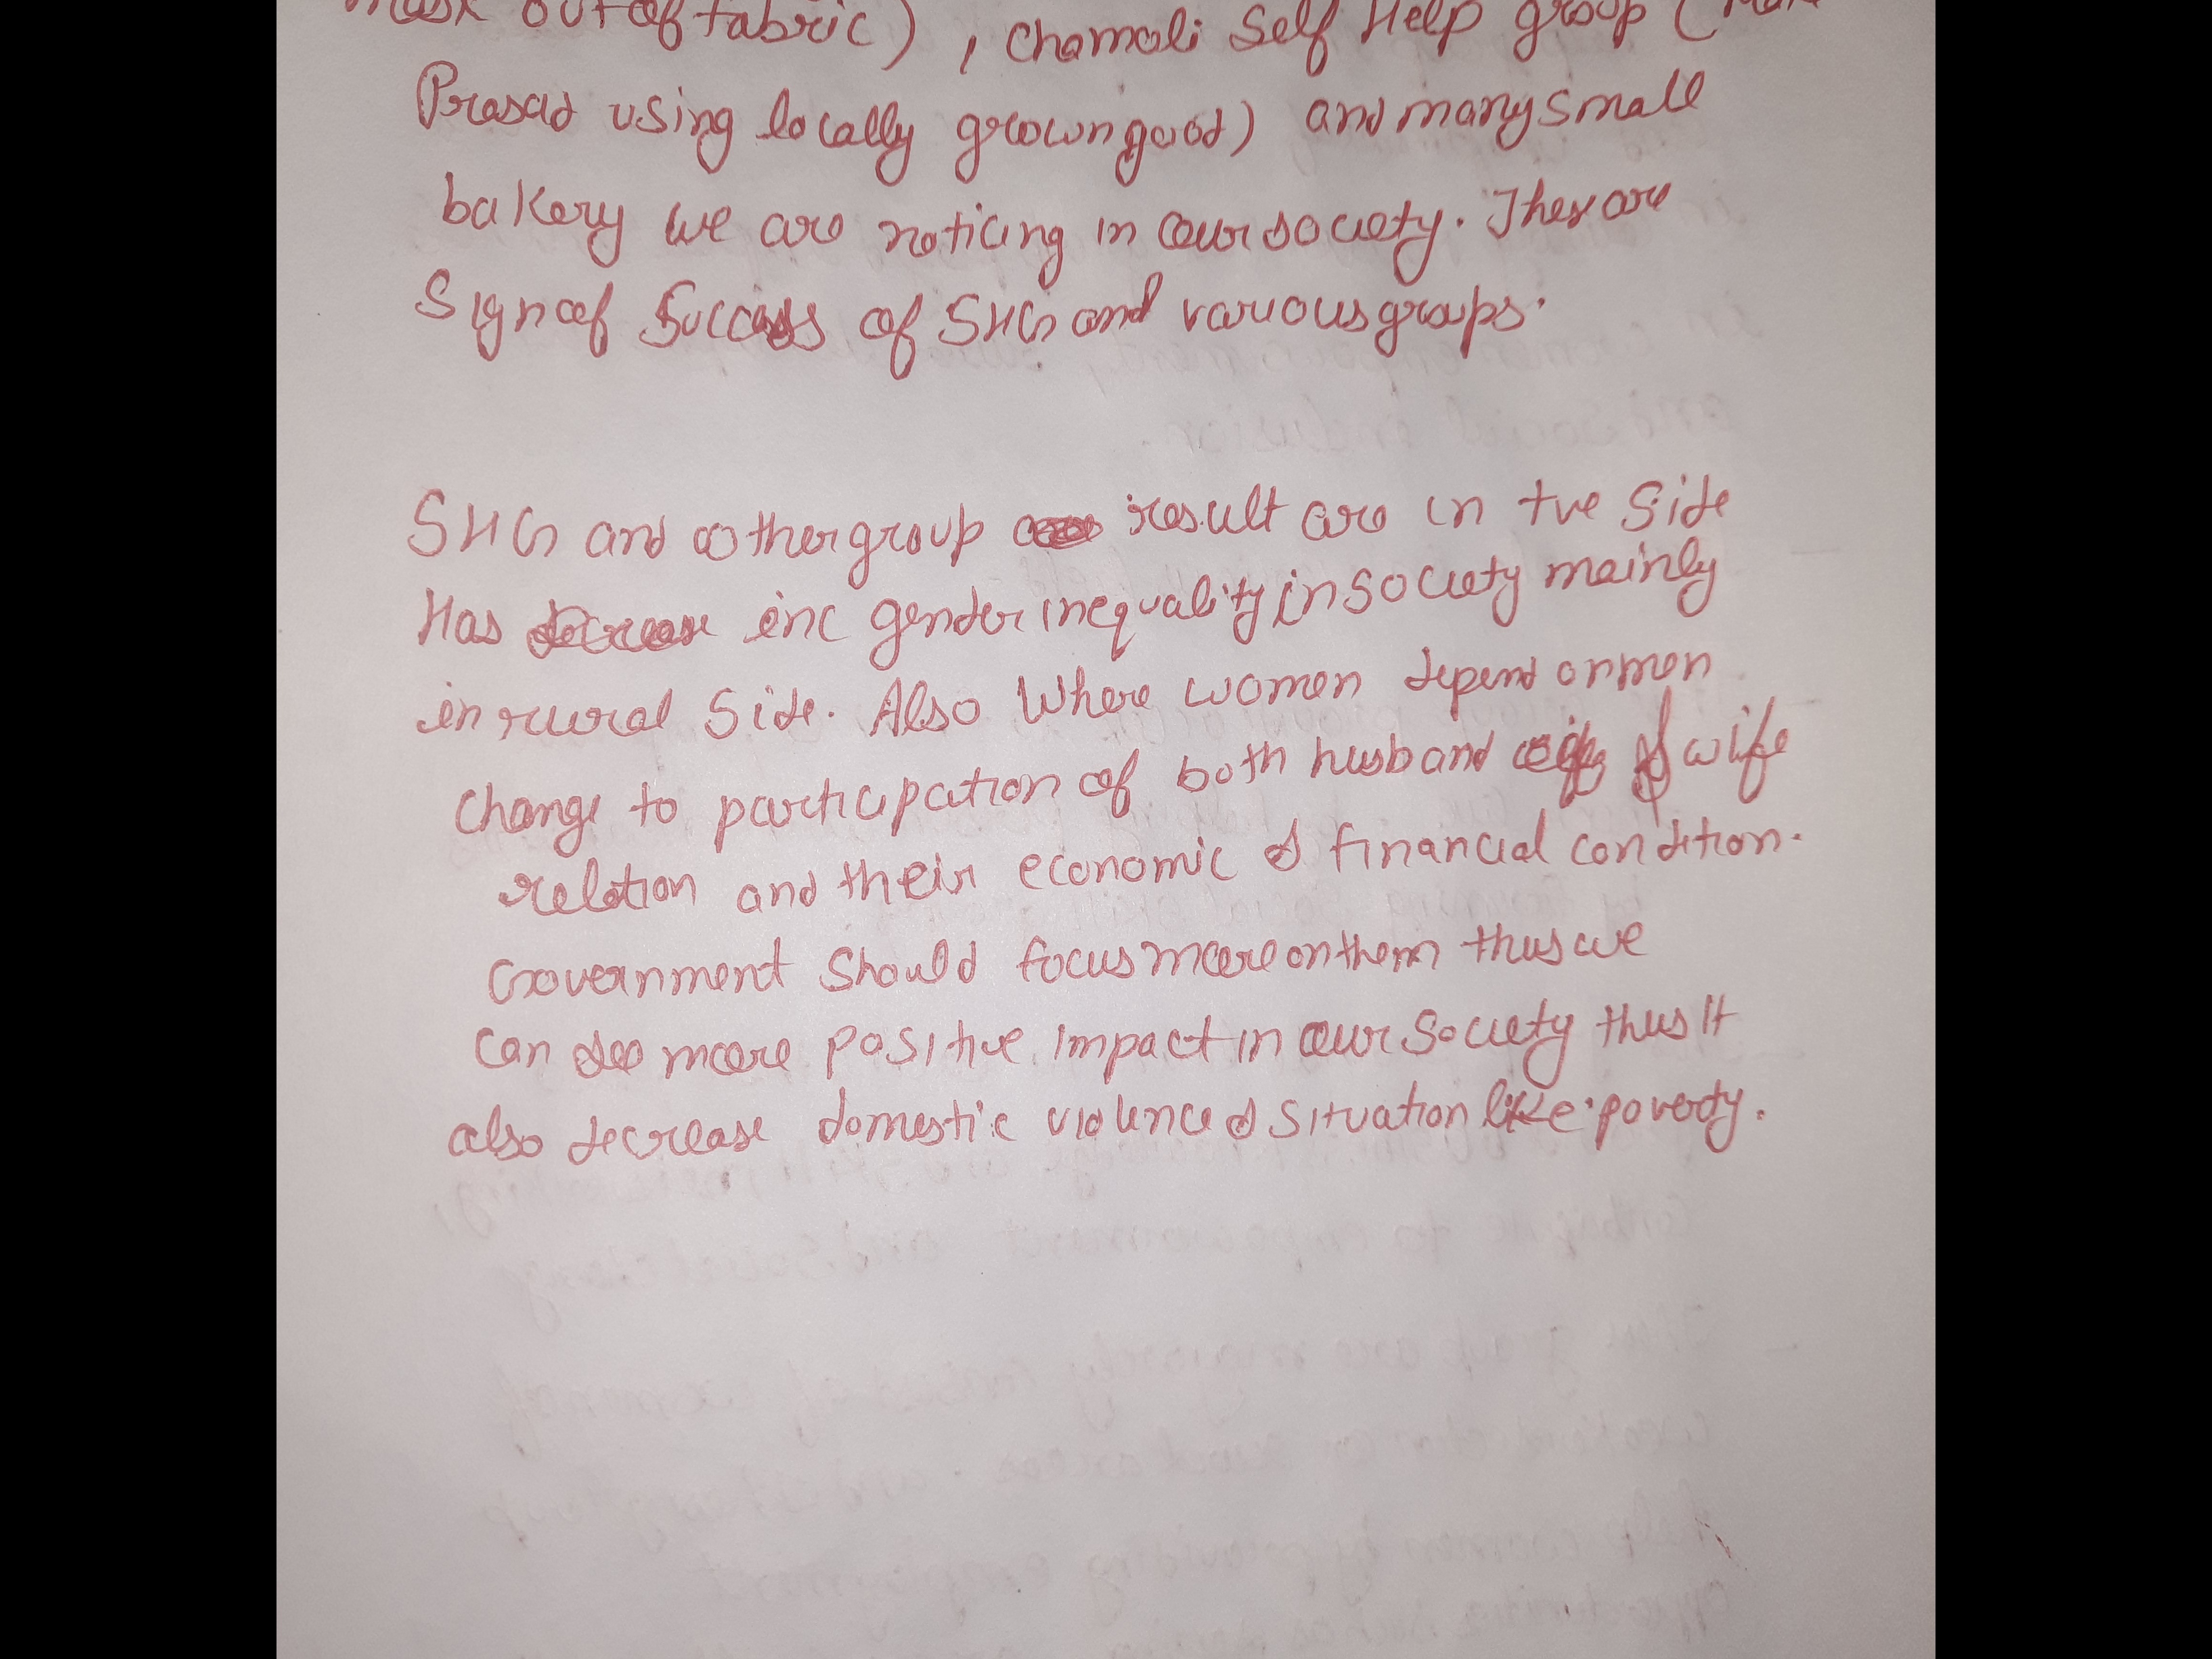 mask out of fabric) , Chamoli Self Help group (
Prasad using locally grown good) and many small
bakery we are noticing in our society. They are
Sign of Success of SHG and various groups.
SHG and other group result are in +ve Side
Has inc gender inequality in society mainly
in rural Side. Also Where women depend on men
change to participation of both husband & wife
relation and their economic & financial condition.
Government Should focus more on them thus we
can see more positive impact in our Society thus It
also decrease domestic violence & situation like poverty.